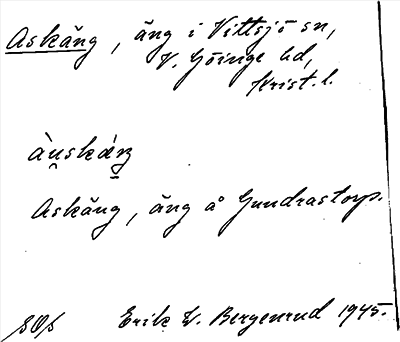 Askäng, äng i Vittsjö sn,
V. Göinge hd,
Krist. l.
àu̯skáŋ
Askäng, äng å Gundrastorp.
Erik W. Bergenrud 1945.